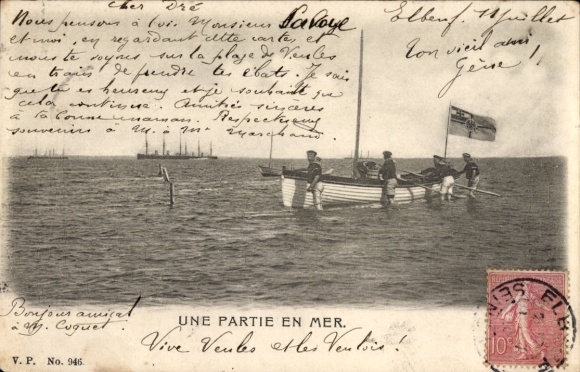 Cher Dré
Nous pensons à toi. Monsieur Savoye
et moi, en regardant cette cartes et
nous te voyons sur la plage de Veules
en train de prendre tes ébats. Je sais
que tu es heureux et je souhaite que
cela continue. Amitiés sincères
à ta bonne maman. Respectueux
souvenirs à M. & Mme Marchand.
Elbeuf. Juillet
Ton vieil ami
Gène!
Bonjour amical
à M. Coquet.
UNE PARTIE EN MER.
Vive Veules et les Veulois!
V. P. No. 946.
10c
ELB
SEIN